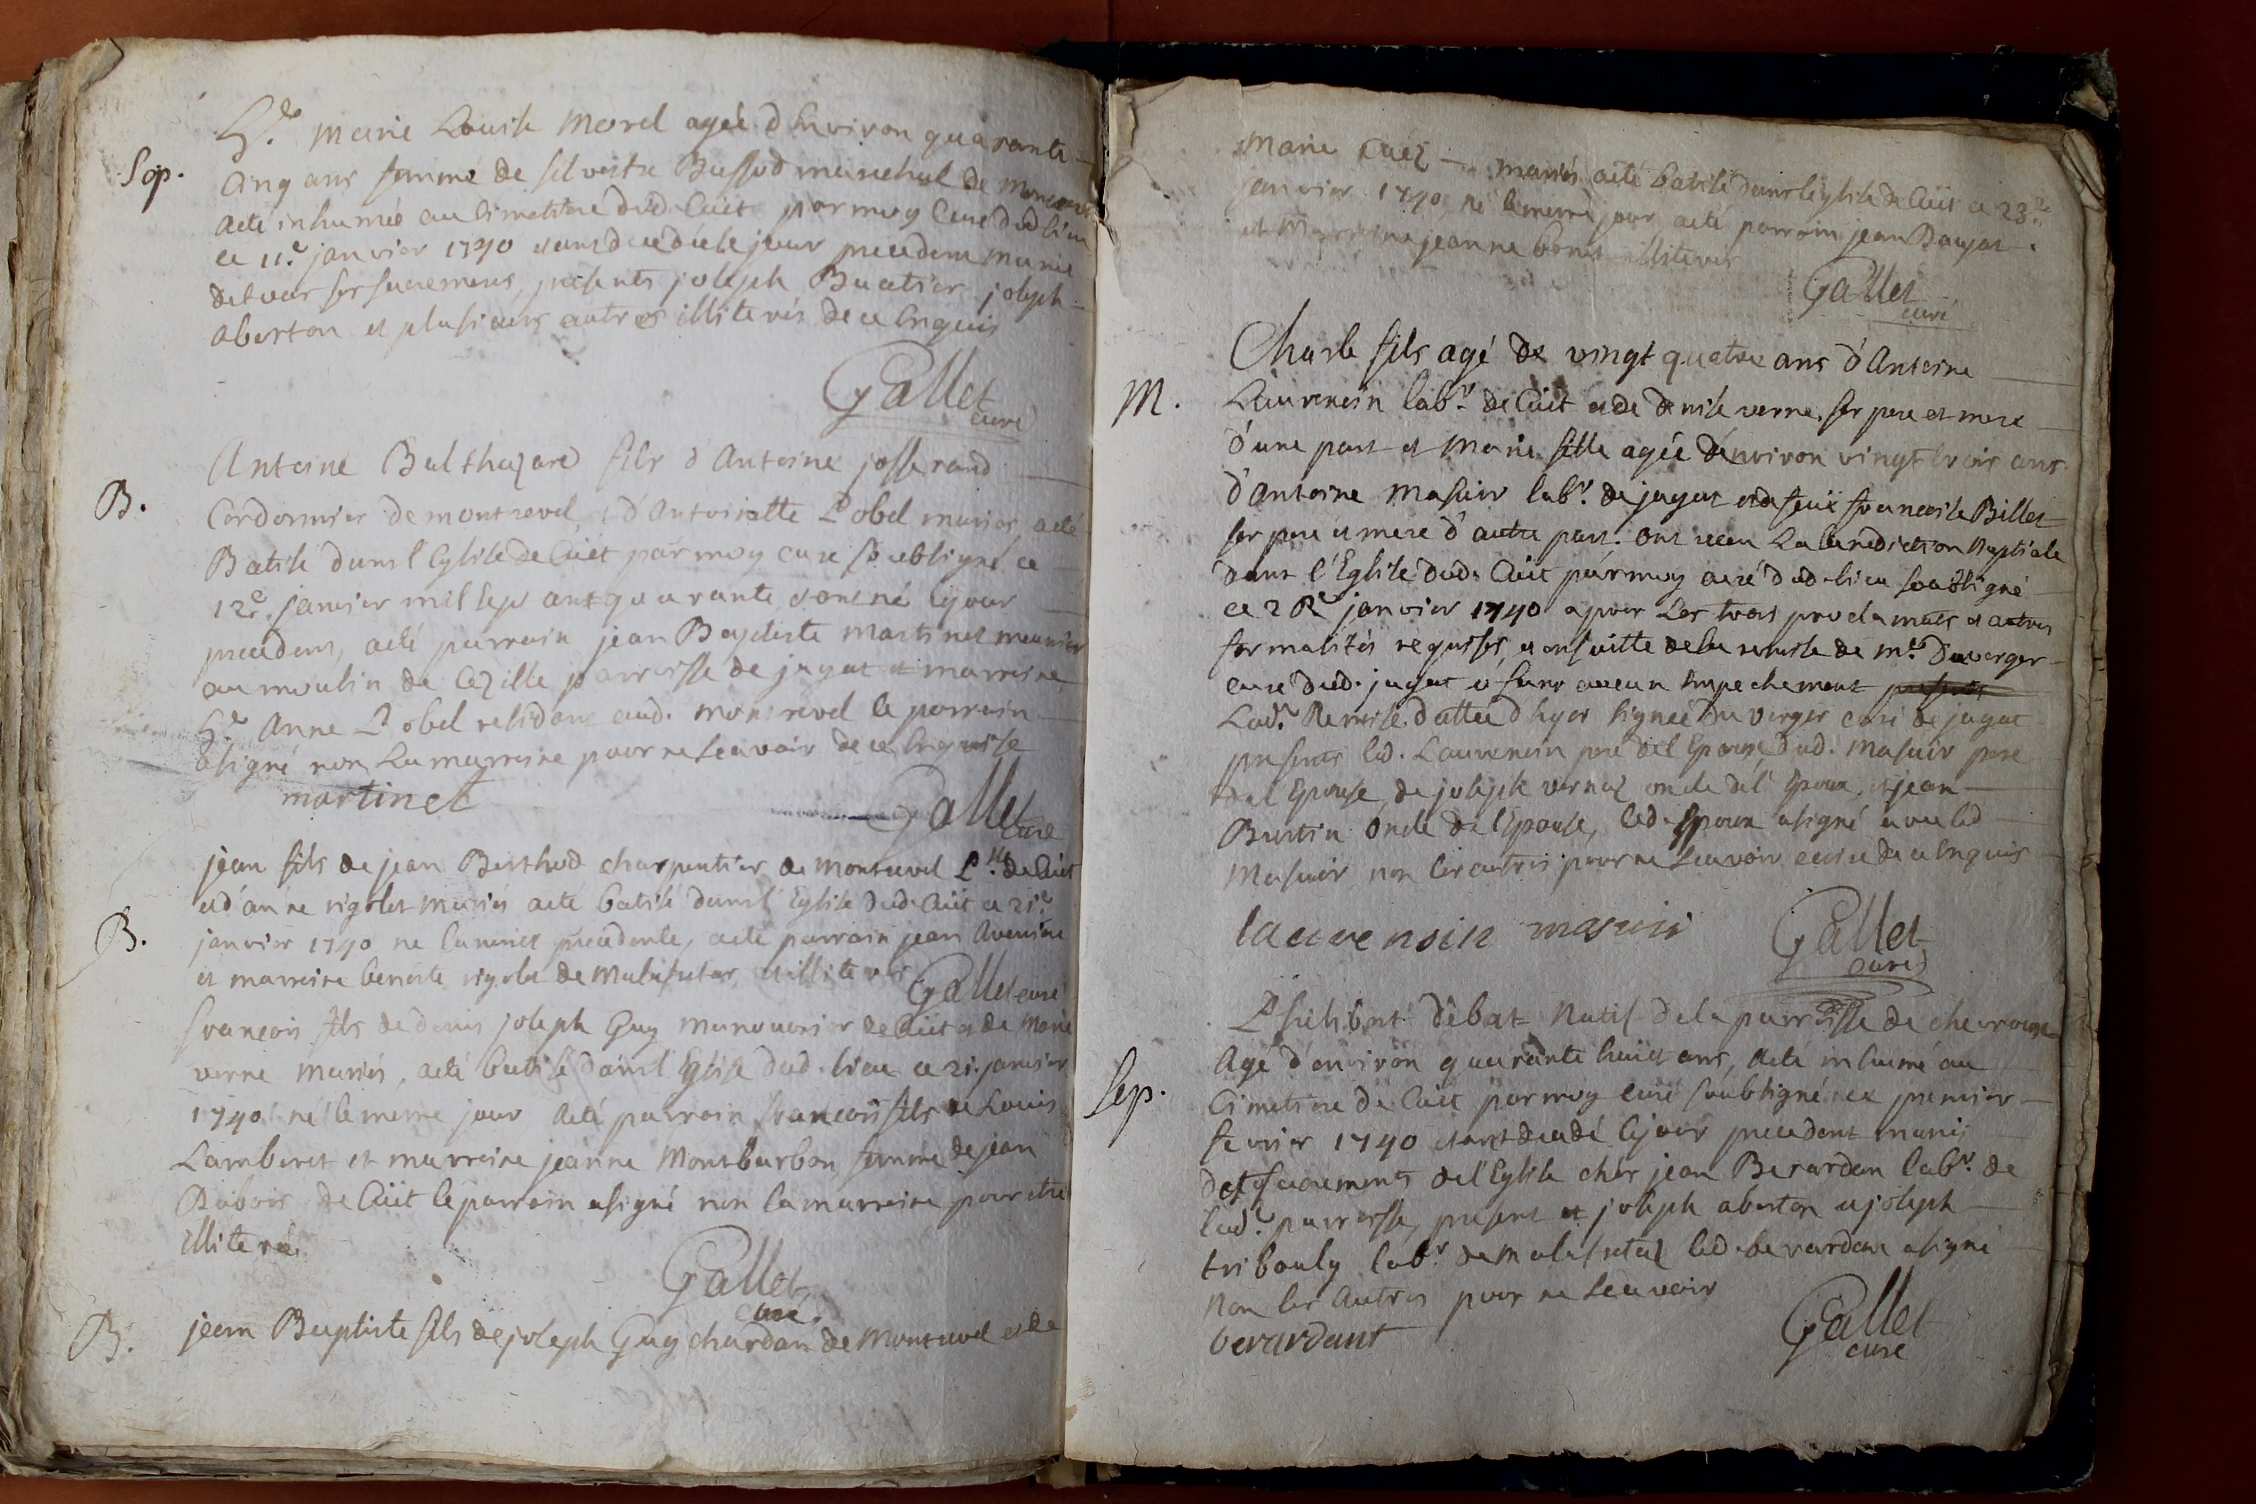 Sep.
h.lle Marie Louise Morel agée d'Environ quarante
Cinq ans femme de silvestre Bussod marechal de
aeté inhumée au Cimettiere dud. Cüet par moy Curé dud lieu
ce 11.e janvier 1740 etant decedée le jour precedent munie
de tous ses sacremens, presents joseph Buatier joseph
aberton et plusieurs autres illiterés de ce Enquis
Gallet
curé
B.
Antoine Balthazard fils d'Antoine josserand
Cordonnier de montrevel, et d'Antoinette Lobel mariés, aeté
Batisé dans l'Eglise de Cüet par moy curé soubsigné ce
12e. janvier mil sept ant quarante etant né le jour
precedent, aeté parrain jean Baptiste Martinet meunier
au moulin de Cezille parroisse de jayat et marreine
h.lle Anne Lobel residant aud. Montrevel le parrain
asigné non La marreine pour ne scavoir de ce Enquise
martinet
Gallet
curé
B.
jean fils de jean Berthod charpentier de Montrevel P.sse de Cüet
et d'anne rigolet mariés aeté batisé dans l'Eglise dud. Cüet ce 21.e
janvier 1740 né la nuict precedente, aeté parrain jean
et marreine benoite rigolet de Malafretaz, illiterés
Gallet curé
francois fils de denis joseph Guy manouvrier de Cüet et de Marie
verne mariés, aeté batisé dans l'Eglise dud. lieu ce 21. janvier
1740. né le meme jour aeté parrain francois fils de Louis
Lamberet et marreine jeanne Montburbon femme de jean
Dubois de Cüet le parrain asigné non la marreine pour etre
illiterée.
Gallet
curé.
B.
jean Baptiste fils de joseph Guy chardan de Montrevel et de
Marie mariés aeté batisé dans l'Eglise de Cüet ce 23.e
janvier 1740, né le meme jour, aeté parrain jean
et Marreine jeanne illiterés
Gallet
curé
M.
Charle fils agé de vingt quatre ans d'Antoine
Laurencin lab.r de Cüet et de denise verne ses pere et mere
d'une part et Marie fille agée d'environ vingt trois ans
d'Antoine Masuir lab.r de jayat et de feüe francoise Billet
ses pere et mere d'autre part. ont receu La benediction Nuptiale
dans l'Eglise dud. Cüet par moy curé dud. lieu soubsigné
ce janvier 1740 apres Les trois proclamats et autres
formalités requises, et ensuitte de la remise de m.re Duverger
curé dud. jayat et sans aucun Empechement presents
Lad.e Remise dattée d'hyer signée Du verger curé de jayat
presents led. Laurencin pere de l'Epoux, dud. Masuir pere
de l'Epouse, de joseph vernaz oncle de l'Epoux, et jean
Burtin oncle de l'Epouse, led. Epoux asigné avec led
Masuir non les autres pour ne scavoir ecrire de ce Enquis
laurensin masuir
Gallet
curé
Sep.
Philibert débat Natif de la parroisse de chevroux
Agé d'environ quarante huict ans, aeté inhumé au
Cimettiere de Cüet par moy curé soubsigné ce premier
fevrier 1740 etant decedé le jour precedent munis
des sacrements de l'Eglise chés jean Berardan lab.r de
lad.e parroisse, present et joseph aberton et joseph
tribouly lab.r de Malafretaz led. berardan asigné
Non les Autres pour ne Scavoir
berardant
Gallet
curé